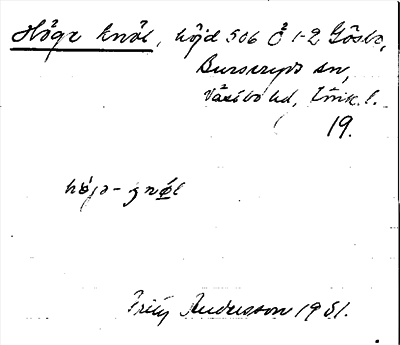 Höge knöl, höjd 506 Ö 1-2 Gösbo,
Burseryds sn,
Västbo hd, Jönk. l.
19.
höjə-gnøl
Fritz Andersson 1951.